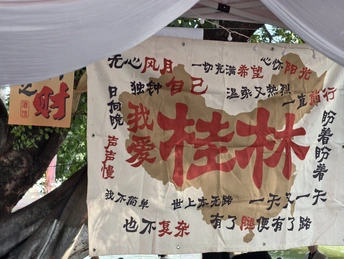 财
无心风月
一切充满希望
心怀阳光
独钟自己
温柔又热烈
一直前行
日向晚
我爱
桂林
盼着盼着
声声慢
我不简单
世上本无路
一天又一天
也不复杂
有了腿便有了路